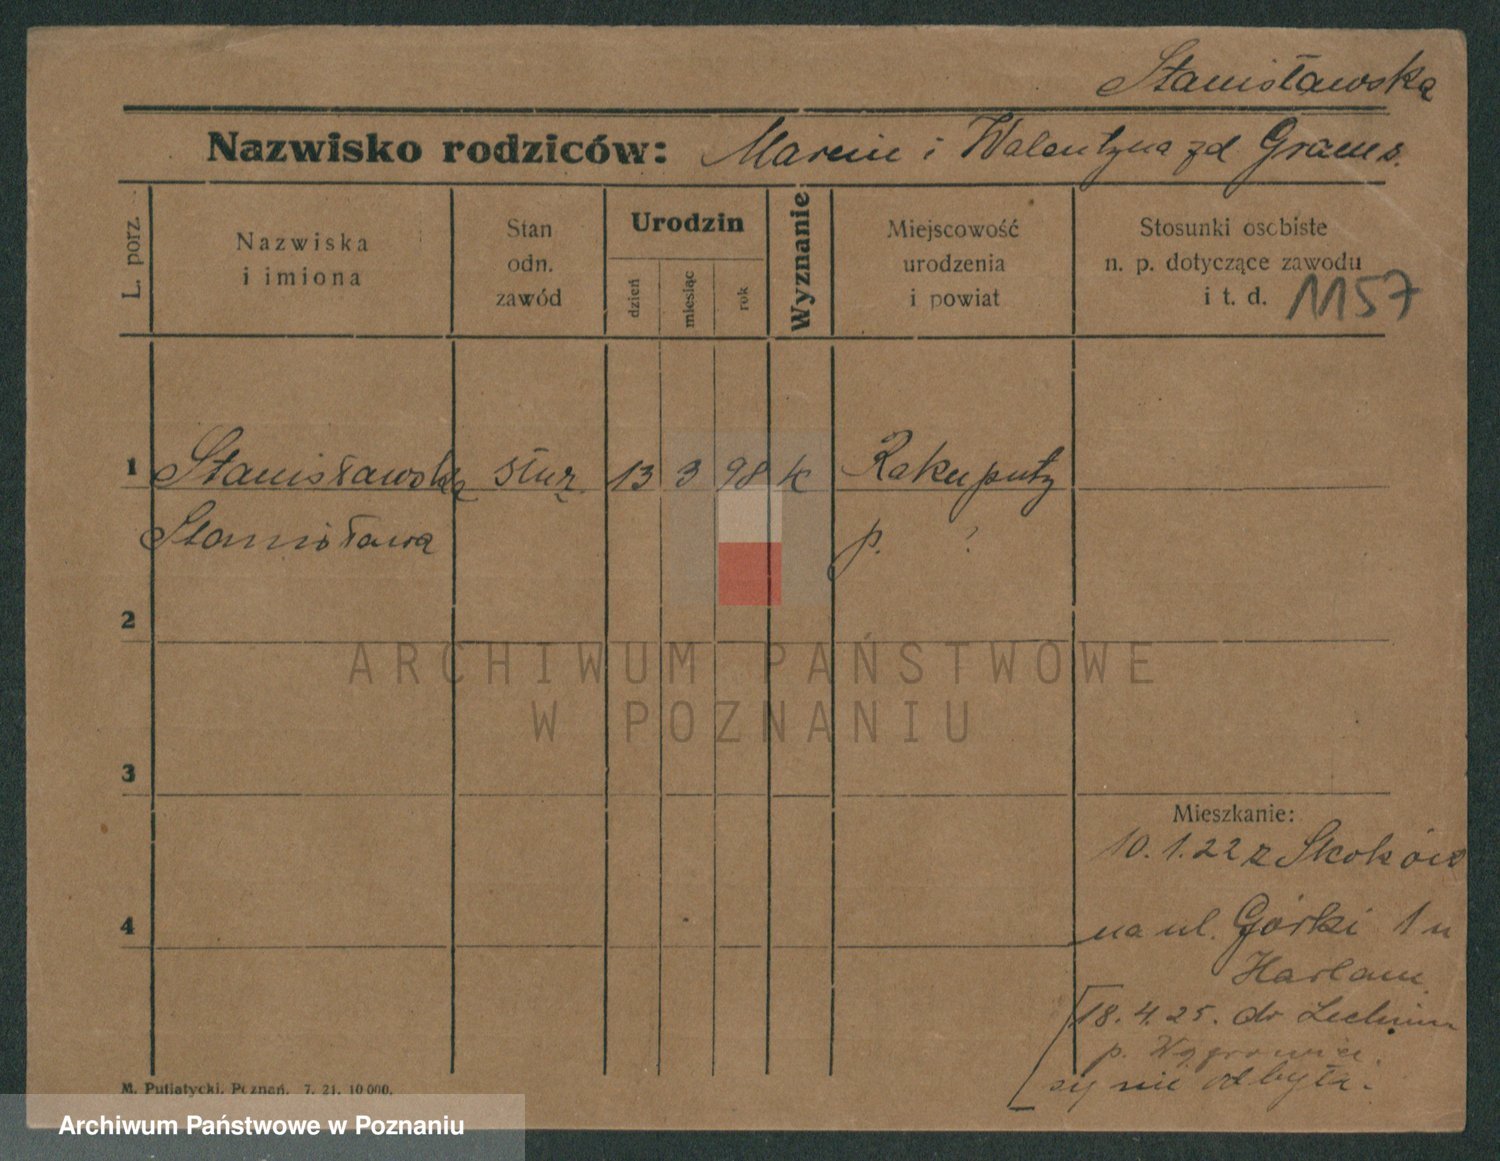 Stanisławska
Nazwisko rodziców: Marcin i Walentyna zd Grams.
L. porz.
Nazwiska
i imiona
Stan
odn.
zawód
Urodzin
dzień
miesiąc
rok
Wyznanie
Miejscowość
urodzenia
i powiat
Stosunki osobiste
n. p. dotyczące zawodu
i t. d. 1157
1 Stanisławska służ. 13 3 98 k Rakuputy
Stanisława p. ?
2
ARCHIWUM PAŃSTWOWE
W POZNANIU
3
Mieszkanie:
10.1.22 z Skoków
4
na ul. Górki 1 u
Harlam
18.4.25. do
p. Wągrowiec.
nie odbyła.
M. Putiatycki, Poznań. 7. 21. 10 000.
Archiwum Państwowe w Poznaniu